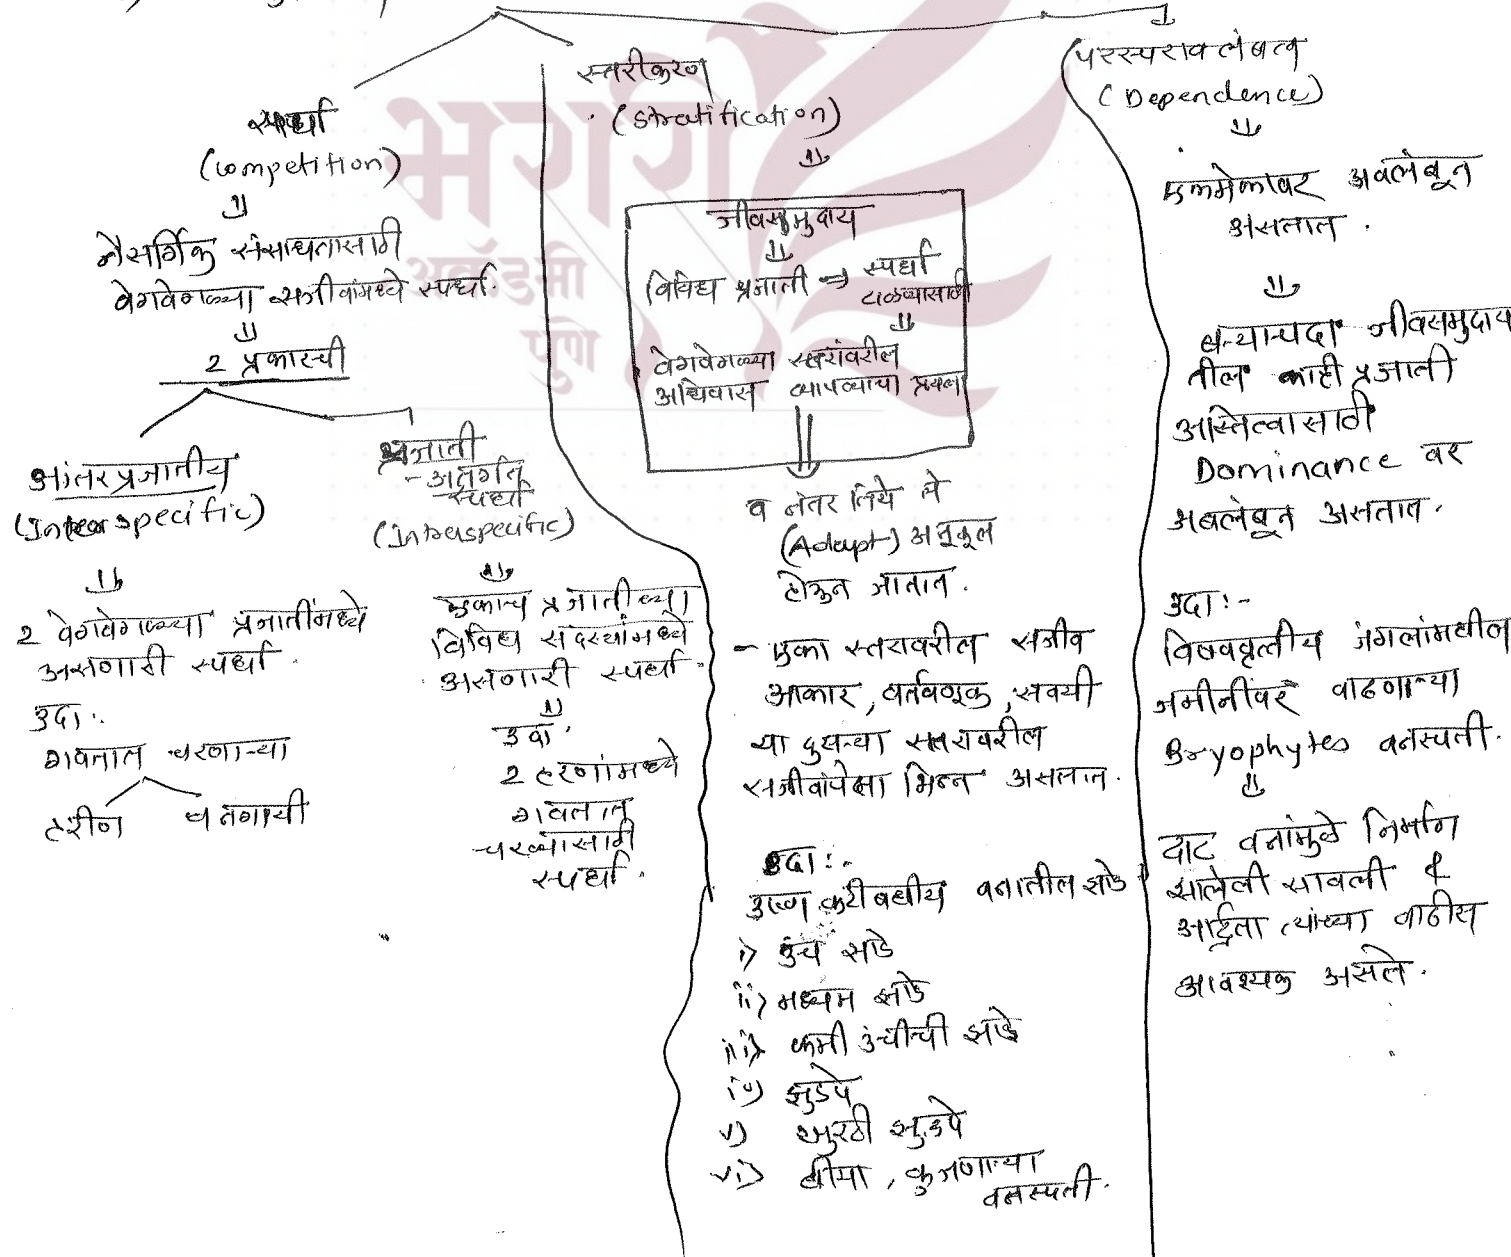 स्पर्धा
(competition)
नैसर्गिक संसाधनासाठी
वेगवेगळ्या सजीवांमध्ये स्पर्धा.
2 प्रकारची
आंतरप्रजातीय
(Interspecific)
2 वेगवेगळ्या प्रजातींमध्ये
असणारी स्पर्धा.
उदा:.
गवतात चरणाऱ्या
हरीण
प्रजाती
- अंतर्गत
स्पर्धा
(Intraspecific)
एकाच प्रजातीच्या
विविध सदस्यांमध्ये
असणारी स्पर्धा.
उदा.
2 हरणांमध्ये
गवतात
चरण्यासाठी
स्पर्धा.
स्तरीकरण
(Stratification)
जीवसमुदाय
विविध प्रजाती ⇒ स्पर्धा
टाळण्यासाठी
वेगवेगळ्या स्तरांवरील
अधिवास व्यापण्याचा प्रयत्न
व नंतर तिथे ते
(Adapt) अनुकूल
होऊन जातात.
- एका स्तरावरील सजीव
आकार, वर्तवणूक, सवयी
या दुसऱ्या स्तरांवरील
सजीवांपेक्षा भिन्न असतात.
उदा:-
उष्ण कटीबंधीय वनातील झाडे
i) उंच झाडे
ii) मध्यम झाडे
iii) कमी उंचीची झाडे
iv) झुडपे
v) खुरटी झुडपे
vi) बीया, कुजणाऱ्या
वनस्पती.
परस्परावलंबन
(Dependence)
एकमेकांवर अवलंबून
असतात.
बऱ्याचदा जीवसमुदाय
तील काही प्रजाती
अस्तित्वासाठी
Dominance वर
अवलंबून असतात.
उदा:-
विषववृत्तीय जंगलांमधील
जमीनीवर वाढणाऱ्या
Bryophytes वनस्पती.
दाट वनांमुळे निर्माण
झालेली सावली &
आर्द्रता त्यांच्या वाढीस
आवश्यक असते.
भगीरथ
अकॅडमी
पुणे